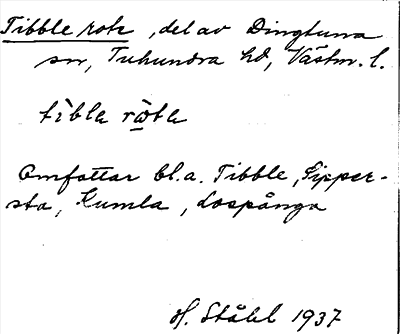 Tibble rote, del av Dingtuna
sn, Tuhundra hd, Västm. l.
tìbla rǫ̀ta
Omfattar bl.a. Tibble, Sipper-
sta, Kumla, Lospånga
H. Ståhl 1937